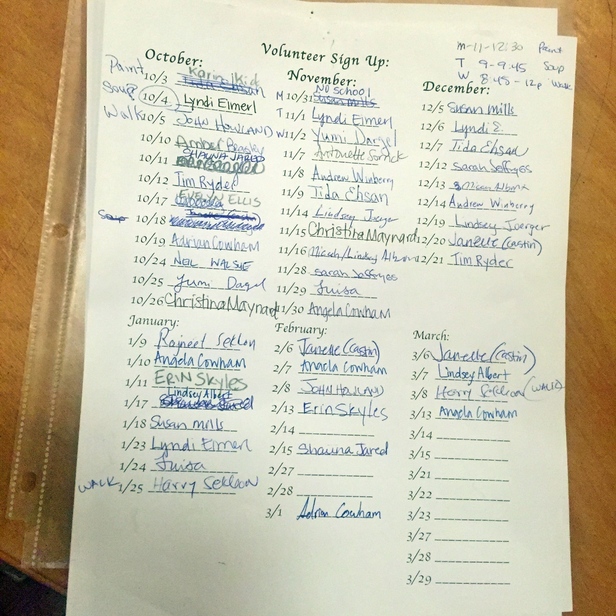 Volunteer Sign Up:
M-11-12:30 Paint
T 9-9:45 Soup
W 8:45-12p Walk
October:
Paint 10/3 Karin Kid
Soup 10/4 Lyndi Eimerl
Walk 10/5 John Howland
10/10 Amber Beasley
10/11 Shauna Jared
10/12 Tim Ryder
10/17 Evelyn Ellis
Soup 10/18
10/19 Adrian Cowham
10/24 Neil Walsie
10/25 Yumi Dazel
10/26 Christina Maynard
November:
M 10/31 No school Susan Mills
T 11/1 Lyndi Eimerl
W 11/2 Yumi Dazel
11/7 Antonette
11/8 Andrew Winberry
11/9 Tida Ehsan
11/14 Lindsey Joerger
11/15 Christina Maynard
11/16 Micah/Lindsey Albert
11/28 Sarah Jeffryes
11/29 Luisa
11/30 Angela Cowham
December:
12/5 Susan Mills
12/6 Lyndi E.
12/7 Tida Ehsan
12/12 Sarah Jeffryes
12/13 Micah Albert
12/14 Andrew Winberry
12/19 Lindsey Joerger
12/20 Janelle (Castin)
12/21 Tim Ryder
January:
1/9 Rajneet Sekhon
1/10 Angela Cowham
1/11 Erin Skyles
1/17 Lindsey Albert
1/18 Susan Mills
1/23 Lyndi Eimerl
1/24 Luisa
Walk 1/25 Harry Sekhon
February:
2/6 Janelle (Castin)
2/7 Angela Cowham
2/8 John Howland
2/13 Erin Skyles
2/14
2/15 Shauna Jared
2/27
2/28
3/1 Adrian Cowham
March:
3/6 Janelle (Castin)
3/7 Lindsey Albert
3/8 Harry Sekhon (Walk)
3/13 Angela Cowham
3/14
3/15
3/21
3/22
3/23
3/27
3/28
3/29